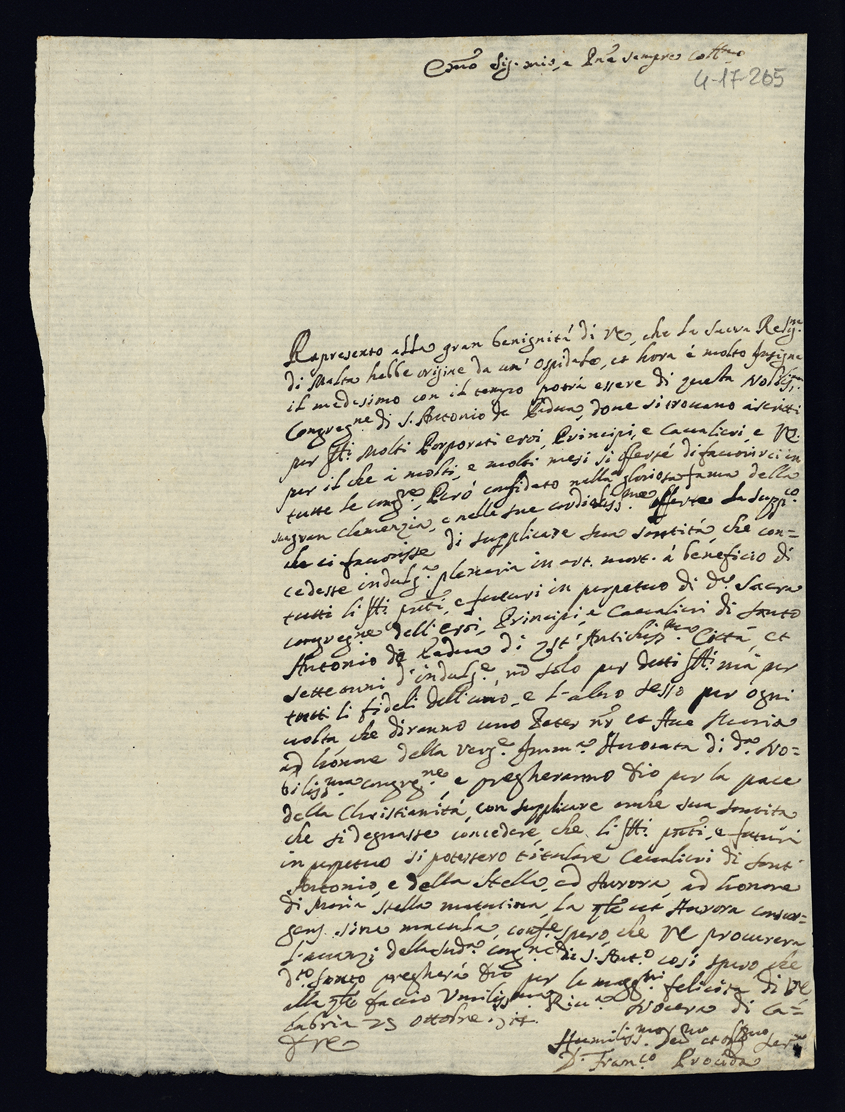 Sig. mio, e Pne sempre
4-17-265
Rapresento alla gran benignità di VE, che la sacra Relig.ne
di Malta hebbe origine da un' ospidale, et hora è molto insigne
il medesimo con il tempo potrà essere di questa Nobiliss.ma
Congreg.ne di S. Antonio de Padua, dove si trovano ascritti
per fr̃i molti Porporati eroi, Principi, e Cavalieri, e VE.
per il che à molti, e molti mesi si offerse di favorirci in
tutte le cong.ne, Però confidato nella gloriosa fama della
sua gran clemenza, e nelle sue cordialiss.me offerte la suppl.co
che ci favorisse di supplicare sua santità, che con=
cedesse indulg.a plenaria in art. mort. à beneficio di
tutti li fr̃i pñti, e futuri in perpetuo di d.a Sacra
congreg.ne dell'eroi, Principi, e Cavalieri di Santo
Antonio de Padua di qst' Antichiss.ma Città, et
sette anni d'indulg.e, nõ solo per detti fr̃i mà per
tutti li fideli dell'uno, e l'altro sesso per ogni
volta che diranno uno Pater nr̃ et Ave Maria
ad honore della Verg.e Imm.a Avocata di d.a No=
biliss.ma congreg.ne, e pregheranno Dio per la pace
della Christianità, con supplicare anche sua santità
che si degnasse concedere che li fr̃i pñti, e futuri
in perpetuo si potessero titulare Cavalieri di Sant'
Antonio, e della Stella, ed Aurora, ad honore
di Maria, stella matutina, la qle Aurora consur=
gens sine macula, spero che VE procurerà
l'avanzi della sud.a cong.ne di S. Ant.o così spero che
d.to Santo pregherà Dio per la magg.r felicità di VE
alla qle faccio Umiliss.ma Riv.a Nocera di Ca=
labria 25 ottobre
DVE
Humiliss.mo Dev.mo et
D. Fran.co Procida